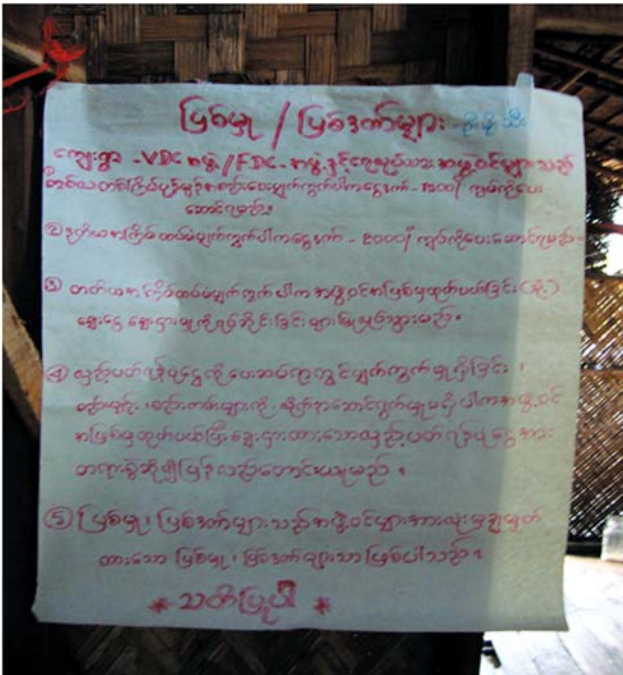 ပြစ်မှု / ပြစ်ဒဏ်များ
ကျေးရွာ -VDC အဖွဲ့/FDC- အဖွဲ့နှင့်ရေလုပ်သား အဖွဲ့ဝင်များသည်
ကြိမ်ပုံမှန်အစည်းအဝေးပျက်ကွက်ပါကငွေဒဏ် - ကျပ်ကိုပေး
ဆောင်ရမည်။
၂ ဒုတိယအကြိမ်ထပ်မံပျက်ကွက်ပါကငွေဒဏ် - ၃၀၀၀/ ကျပ်ကိုပေးဆောင်ရမည်။
၃ တတိယအကြိမ်ထပ်မံပျက်ကွက်ပါက အဖွဲ့ဝင်အဖြစ်မှထုတ်ပယ်ခြင်း (သို့)
ချေးငွေ ချေးငှားမှုကိုရပ်ဆိုင်းခြင်းများပြုလုပ်သွားမည်။
၄ လှည့်ပတ်ရန်ပုံငွေကိုပေးဆပ်ရာတွင်ပျက်ကွက်မှုရှိခြင်း ၊
စည်းမျဉ်း ၊ စည်းကမ်းများကို လိုက်နာဆောင်ရွက်မှုမရှိပါကအဖွဲ့ဝင်
အဖြစ်မှထုတ်ပယ်ပြီးချေးငှားထားသောလှည့်ပတ်ရန်ပုံငွေအား
တရားစွဲဆို၍ပြန်လည်တောင်းယူမည် ။
၅ ပြစ်မှု ၊ ပြစ်ဒဏ်များသည်အဖွဲ့ဝင်များအားလုံးမှချမှတ်
ထားသော ပြစ်မှု ၊ ပြစ်ဒဏ်များသာ ဖြစ်ပါသည် ။
* သတိပြုပါ *